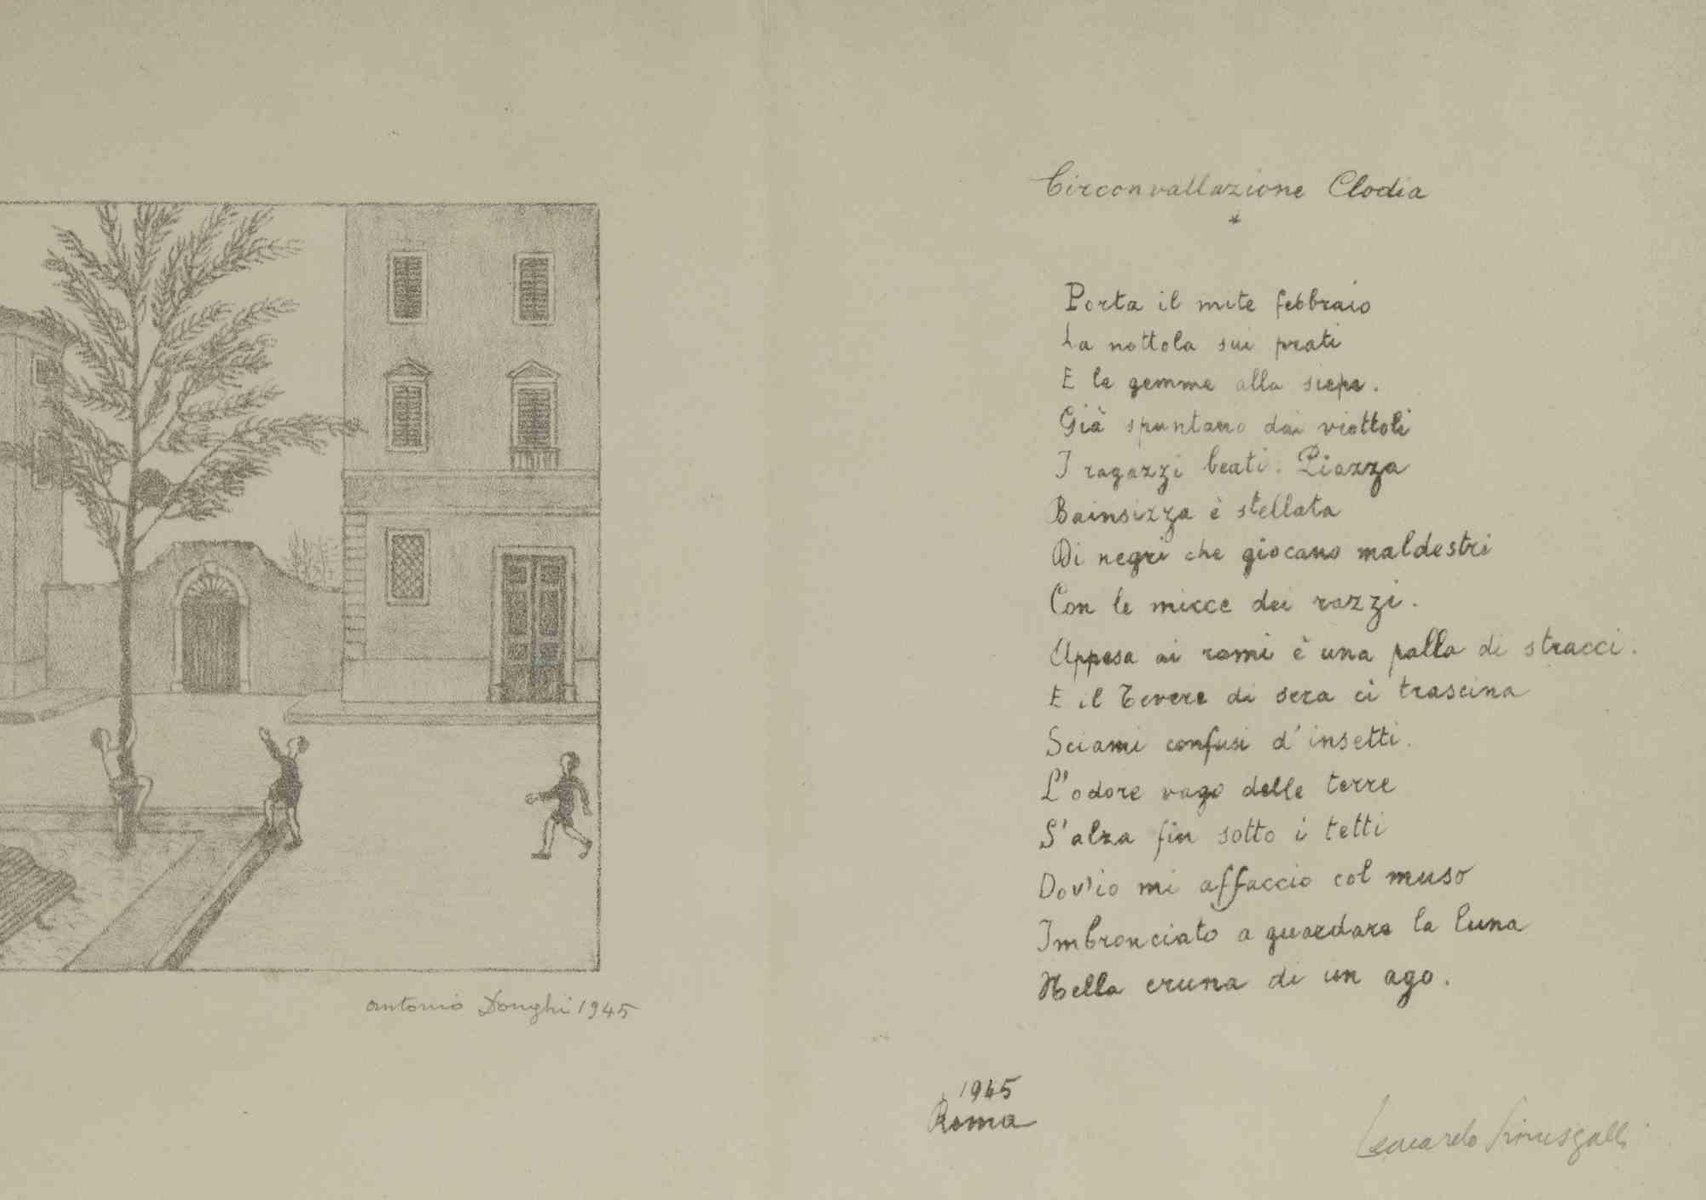 Antonio Donghi 1945
Circonvallazione Clodia
*
Porta il mite febbraio
La nottola sui prati
E le gemme alla siepe.
Già spuntano dai viottoli
I ragazzi beati. Piazza
Bainsizza è stellata
Di negri che giocano maldestri
Con le micce dei razzi.
Appesa ai rami è una palla di stracci.
E il Tevere di sera ci trascina
Sciami confusi d'insetti.
L'odore vago delle terre
S'alza fin sotto i tetti
Dov'io mi affaccio col muso
Imbronciato a guardare la luna
Nella cruna di un ago.
1945
Roma
Leonardo Sinisgalli